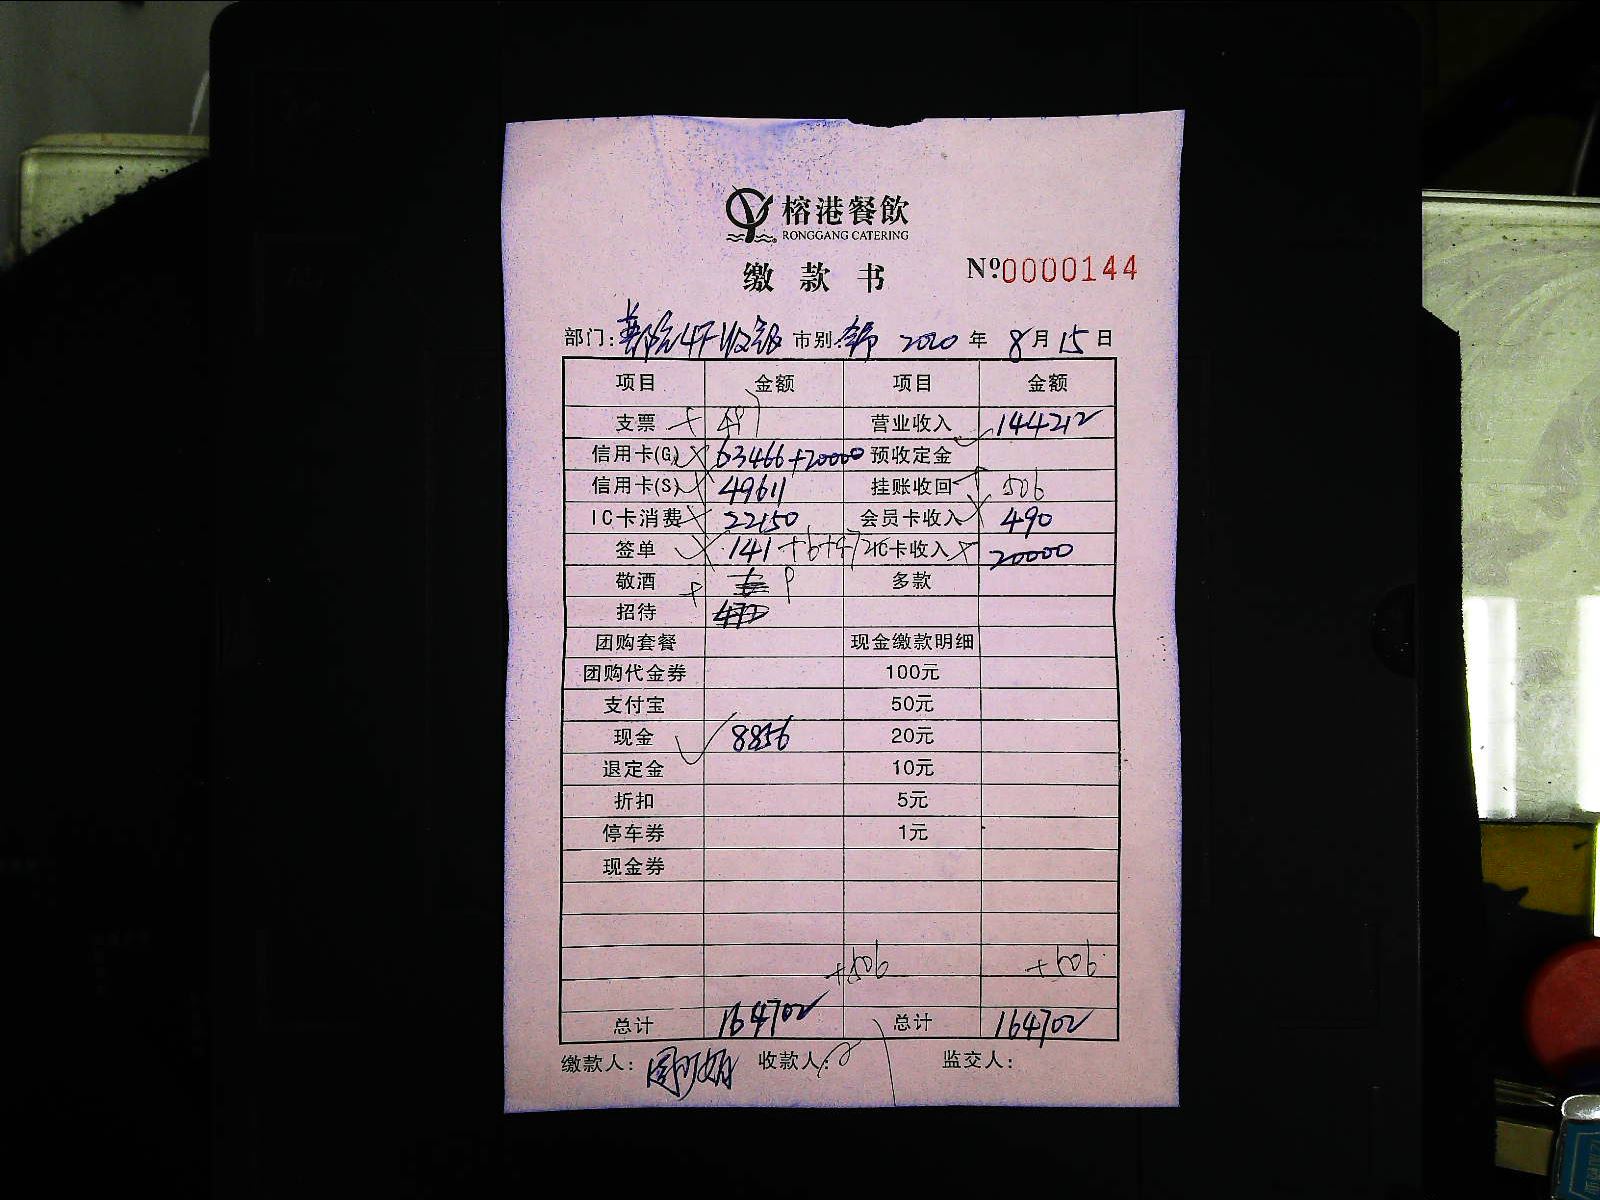 榕港餐飲
RONGGANG CATERING
缴款书 Nº0000144
部门: 4F收银 市别: 2020年8月15日
项目 金额 项目 金额
支票 营业收入 144212
信用卡(G) 63466+20000 预收定金
信用卡(S) 49611 挂账收回 506
IC卡消费 22150 会员卡收入 490
签单 141+6+472 IC卡收入 20000
敬酒 多款
招待
团购套餐 现金缴款明细
团购代金券 100元
支付宝 50元
现金 8856 20元
退定金 10元
折扣 5元
停车券 1元
现金券
+506 +506
总计 164702 总计 164702
缴款人: 收款人: 监交人: